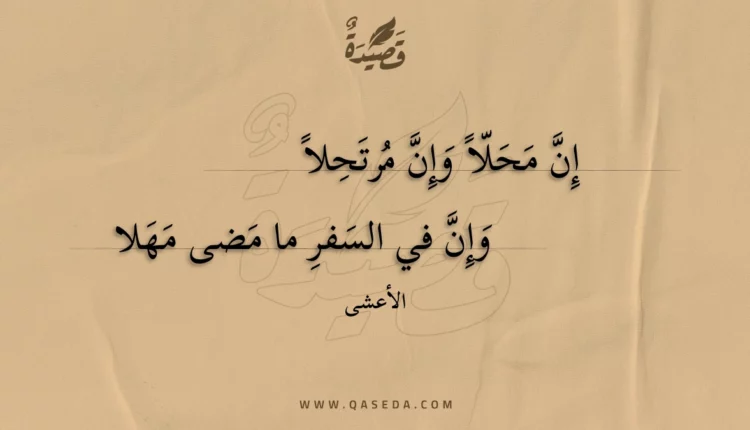 قَصِيْدَةٌ
إِنَّ مَحَلّاً وَإِنَّ مُرتَحِلاً
وَإِنَّ في السَفرِ ما مَضى مَهَلا
الأعشى
WWW.QASEDA.COM